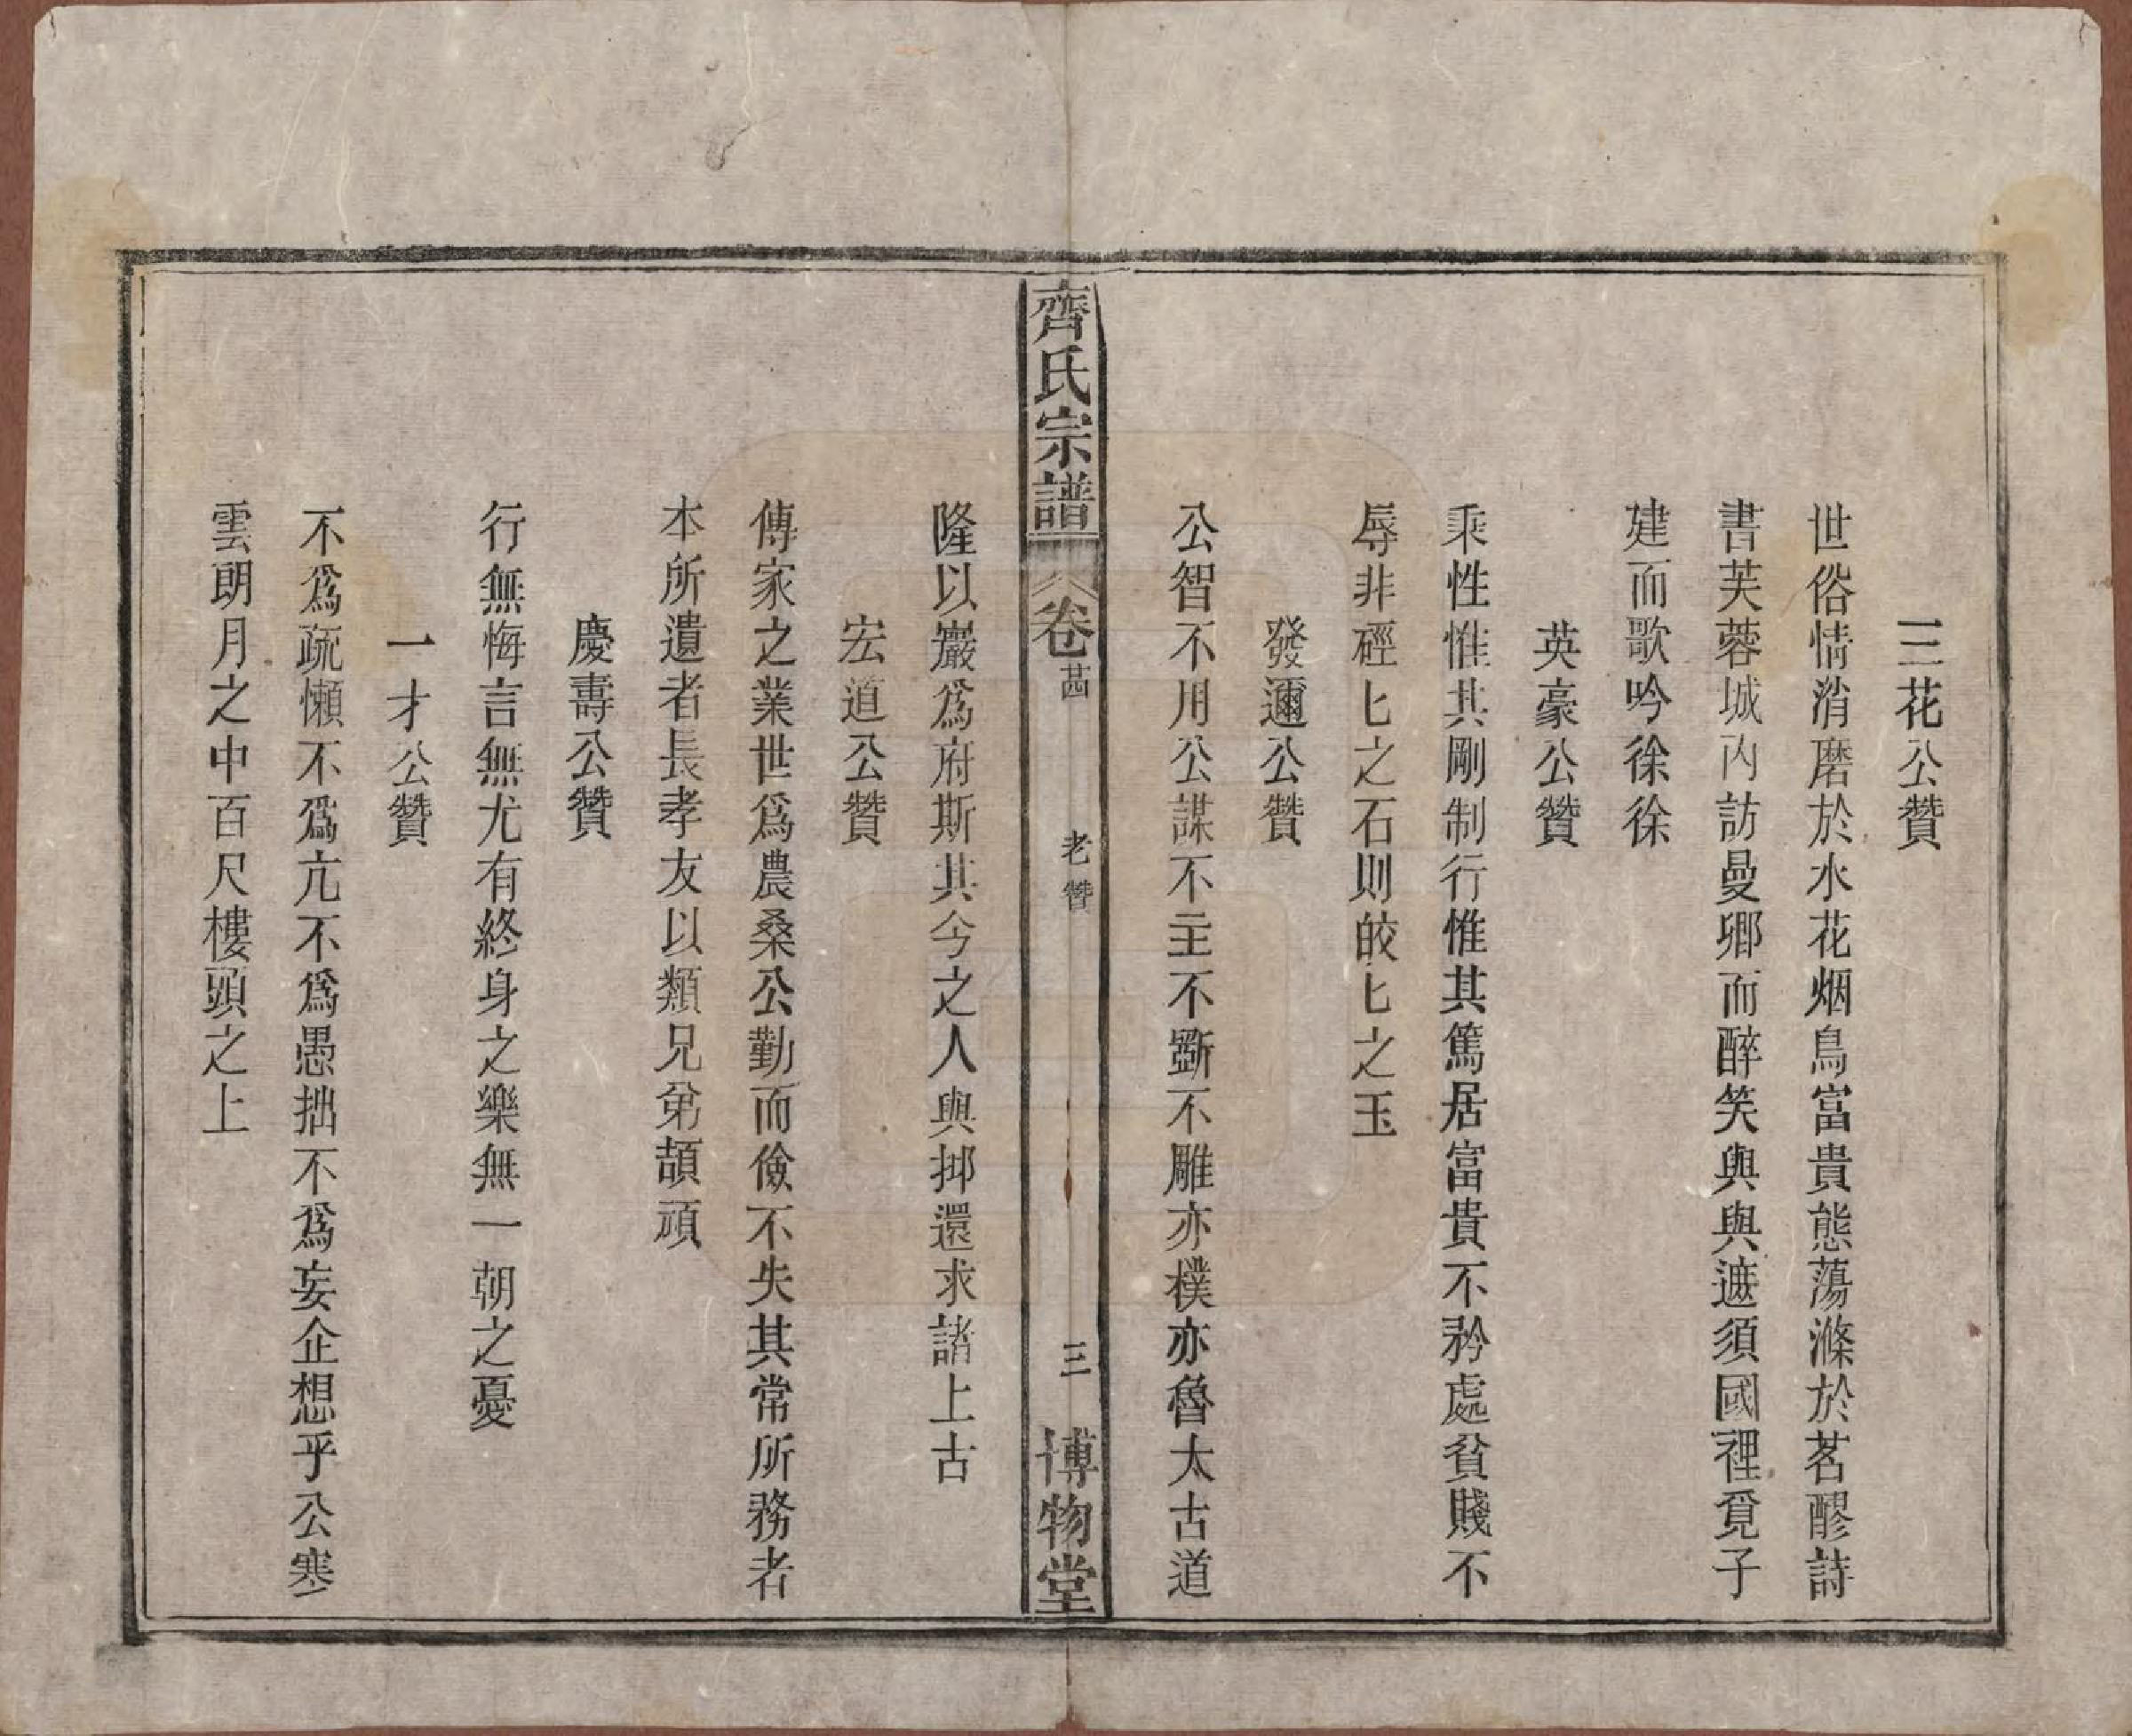 三花公贊
世俗情消磨於水花烟鳥富貴態蕩滌於茗醪詩
書芙蓉城內訪曼卿而醉笑與與遮須國裡覓子
建而歌吟徐徐
英豪公贊
秉性惟其剛制行惟其篤居富貴不矜處貧賤不
辱非硜匕之石則皎匕之玉
發邇公贊
公智不用公謀不主不斲不雕亦樸亦魯太古道
齊氏宗譜 卷 老贊 三 博物堂
隆以巖爲府斯其今之人與抑還求諸上古
宏道公贊
傳家之業世爲農桑公勤而儉不失其常所務者
本所遺者長孝友以類兄弟頡頏
慶壽公贊
行無悔言無尤有終身之樂無一朝之憂
一才公贊
不爲疏懶不爲亢不爲愚拙不爲妄企想乎公寒
雲朗月之中百尺樓頭之上